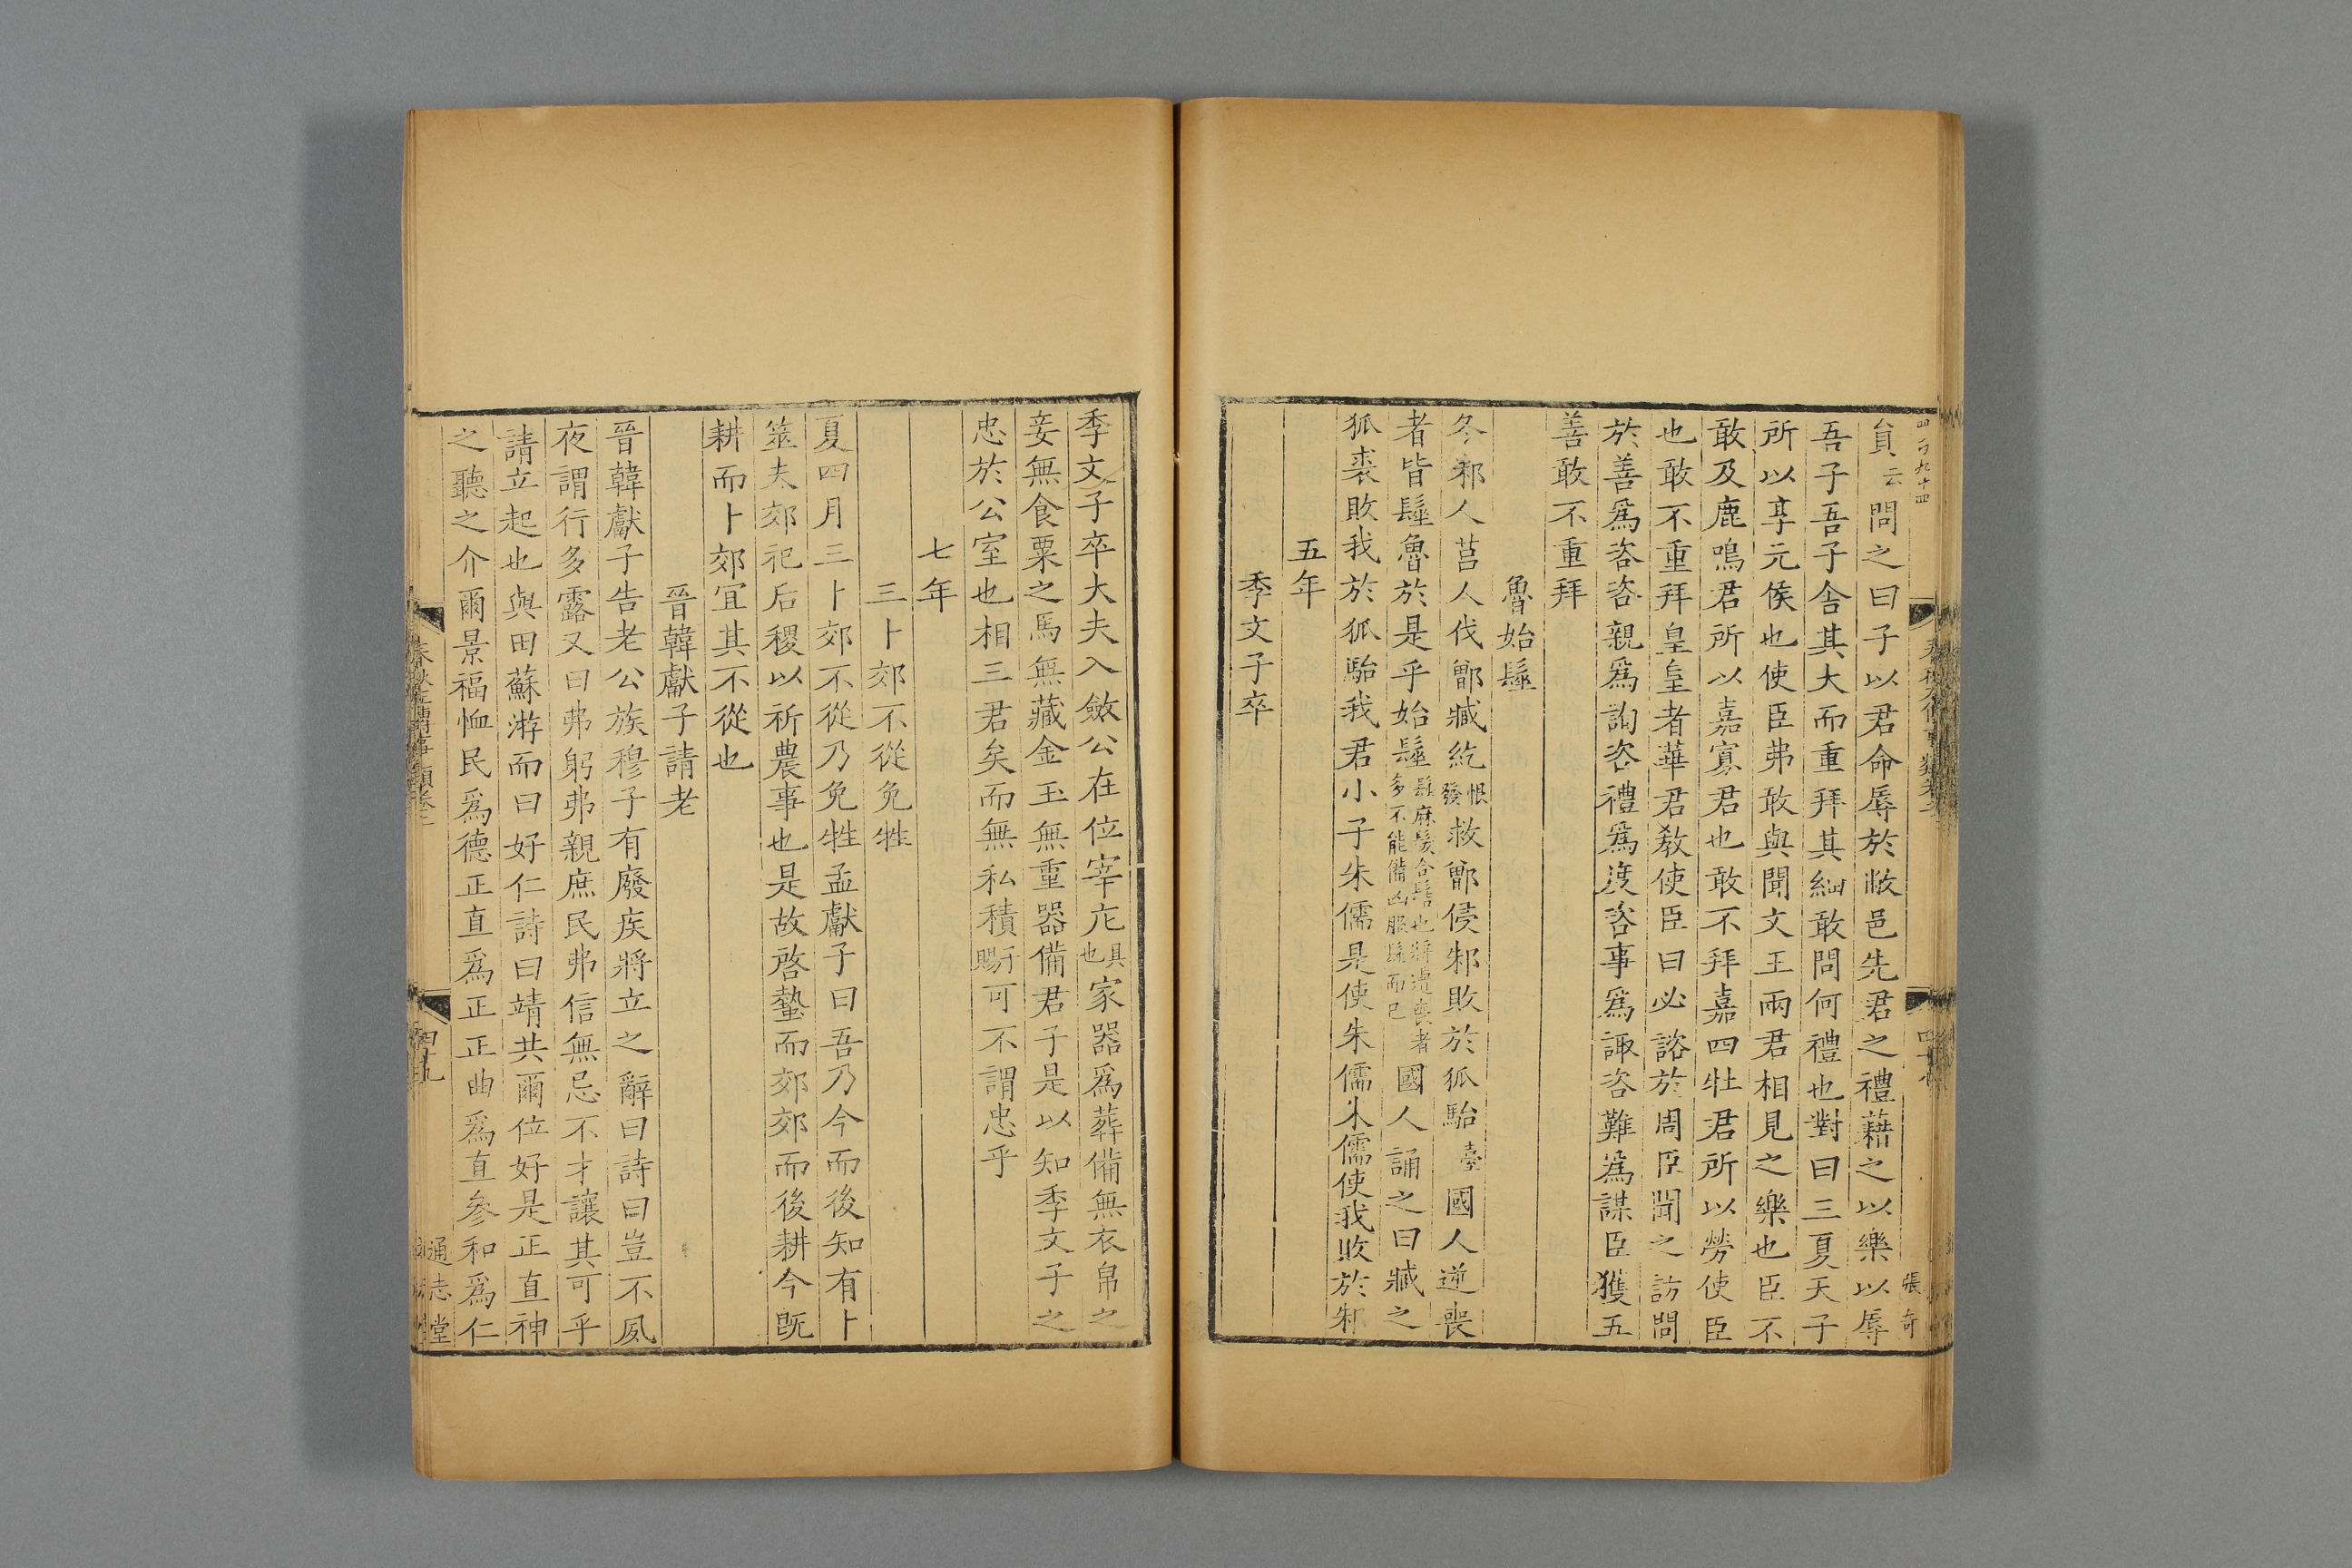 員云問之曰子以君命辱於敝邑先君之禮藉之以樂以辱
吾子吾子舍其大而重拜其細敢問何禮也對曰三夏天子
所以享元侯也使臣弗敢與聞文王兩君相見之樂也臣不
敢及鹿鳴君所以嘉寡君也敢不拜嘉四牡君所以勞使臣
也敢不重拜皇皇者華君教使臣曰必諮於周臣聞之訪問
於善爲咨咨親爲詢咨禮爲度咨事爲諏咨難爲謀臣獲五
善敢不重拜
魯始髽
冬邾人莒人伐鄫臧紇恨發救鄫侵邾敗於狐駘臺國人逆喪
者皆髽魯於是乎始髽髽麻髮合髻也將遭喪者多不能備凶服髽而已國人誦之曰臧之
狐裘敗我於狐駘我君小子朱儒是使朱儒朱儒使我敗於邾
五年
季文子卒
張奇
季文子卒大夫入斂公在位宰庀具也家器爲葬備無衣帛之
妾無食粟之馬無藏金玉無重器備君子是以知季文子之
忠於公室也相三君矣而無私積賜于可不謂忠乎
七年
三卜郊不從免牲
夏四月三卜郊不從乃免牲孟獻子曰吾乃今而後知有卜
筮夫郊祀后稷以祈農事也是故啓蟄而郊郊而後耕今既
耕而卜郊宜其不從也
晉韓獻子請老
晉韓獻子告老公族穆子有廢疾將立之辭曰詩曰豈不夙
夜謂行多露又曰弗躬弗親庶民弗信無忌不才讓其可乎
請立起也與田蘇游而曰好仁詩曰靖共爾位好是正直神
之聽之介爾景福恤民爲德正直爲正正曲爲直參和爲仁
春秋左傳事類卷二
四十九
通志堂